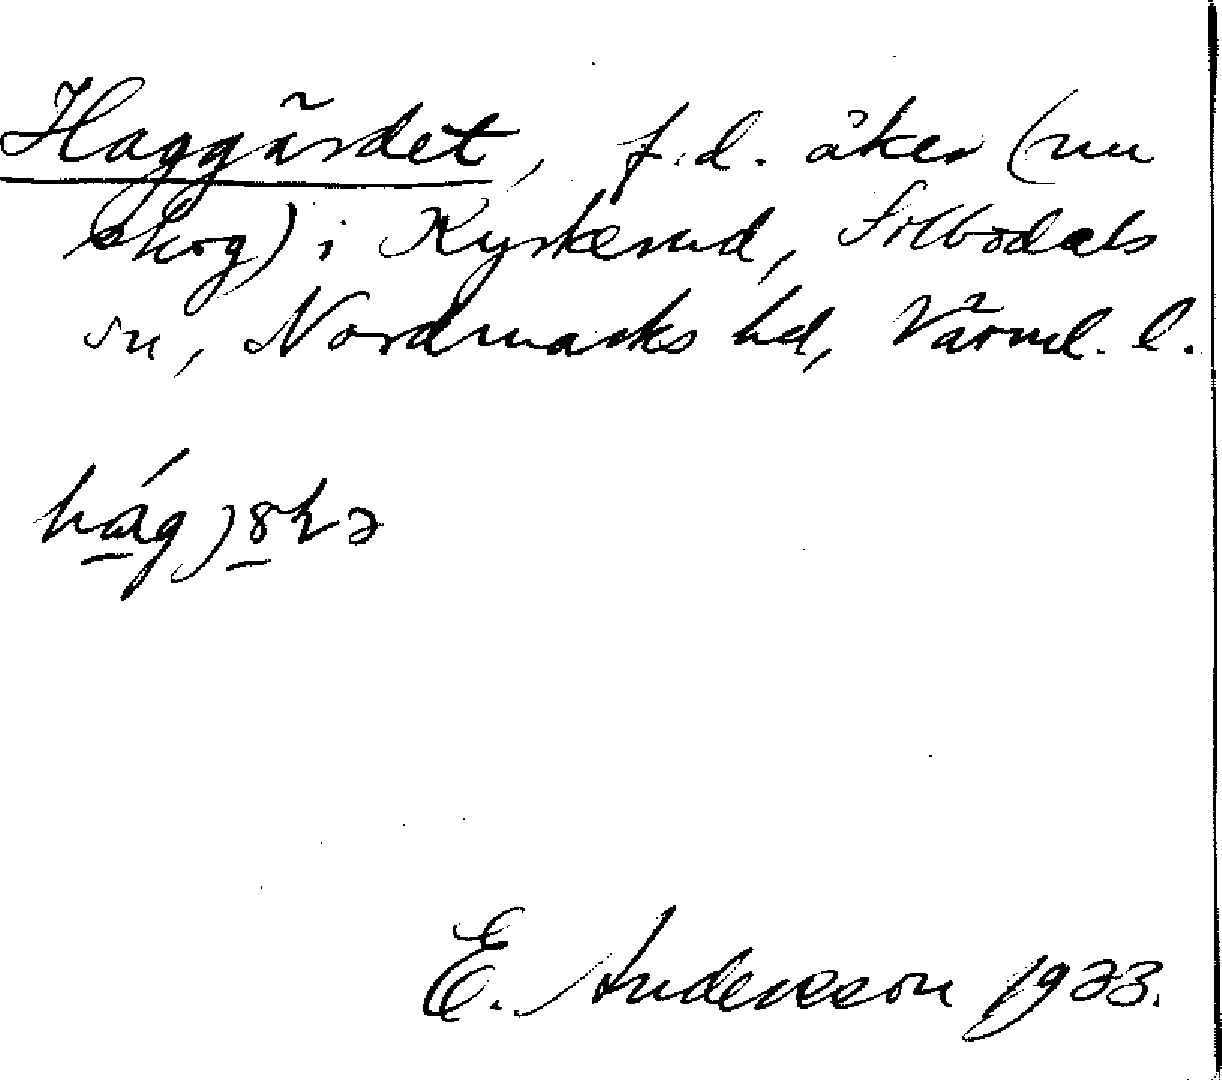 Haggärdet, f.d. åker (nu
skog) i Kyrkerud, Sillbodals
sn, Nordmarks hd, Värml. l.
E. Andersson 1933.